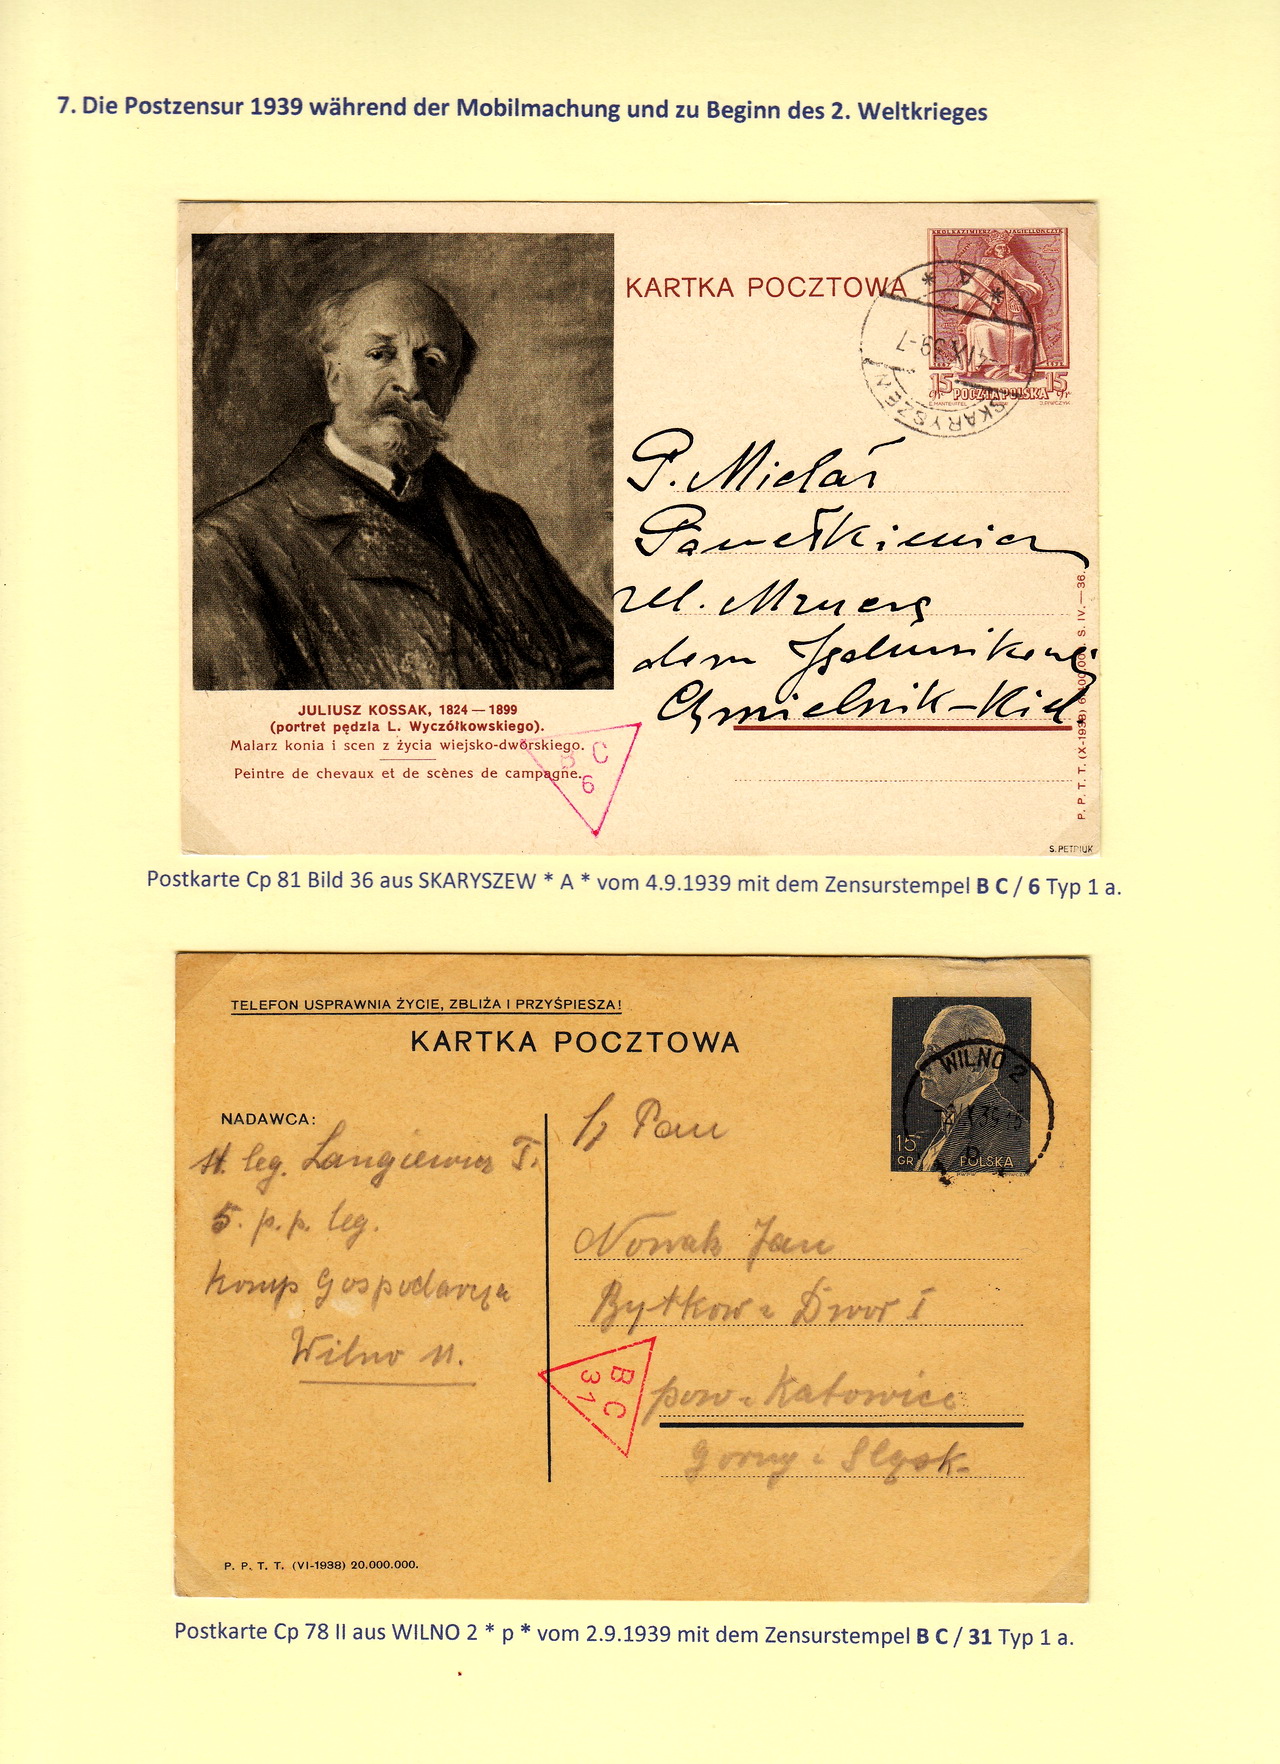 7. Die Postzensur 1939 während der Mobilmachung und zu Beginn des 2. Weltkrieges
KARTKA POCZTOWA
KRÓL KAZIMIERZ JAGIELLOŃCZYK
* A *
-4.IX.39-7
SKARYSZEW
15 gr POCZTA POLSKA 15 gr
P.
dom
Chmielnik-Kiel.
P. P. T. T. (X-1938) S. IV.—36.
JULIUSZ KOSSAK, 1824—1899
(portret pędzla L. Wyczółkowskiego).
Malarz konia i scen z życia wiejsko-dworskiego.
Peintre de chevaux et de scènes de campagne.
B C
6
S. PETRIUK
Postkarte Cp 81 Bild 36 aus SKARYSZEW * A * vom 4.9.1939 mit dem Zensurstempel B C / 6 Typ 1 a.
TELEFON USPRAWNIA ŻYCIE, ZBLIŻA I PRZYŚPIESZA!
KARTKA POCZTOWA
WILNO 2
15 GR POLSKA
NADAWCA:
leg. Langiewicz T.
5. p.p. leg.
Komp Gospodarcza
Wilno 11.
Pan
Nowak Jan
Bytkow - Dwor I
pow - Katowice
Gorny - Sląsk-
B C
31
P. P. T. T. (VI-1938) 20.000.000.
Postkarte Cp 78 II aus WILNO 2 * p * vom 2.9.1939 mit dem Zensurstempel B C / 31 Typ 1 a.